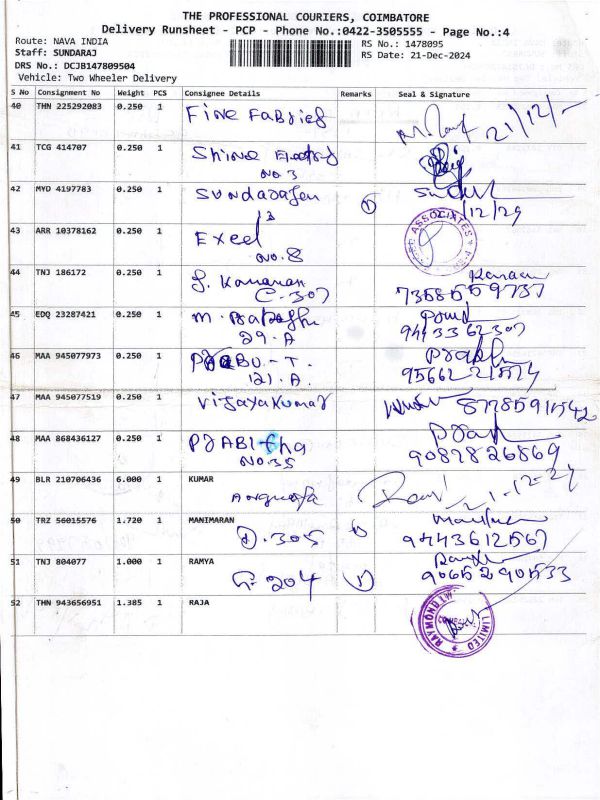 THE PROFESSIONAL COURIERS, COIMBATORE
Delivery Runsheet - PCP - Phone No.:0422-3505555 - Page No.:4
Route: NAVA INDIA
RS No.: 1478095
Staff: SUNDARAJ
RS Date: 21-Dec-2024
DRS No.: DCJB147809504
Vehicle: Two Wheeler Delivery
S No Consignment No Weight PCS Consignee Details Remarks Seal & Signature
40 THN 225292083 0.250 1 Fine Fabrics
21/12/-
41 TCG 414707 0.250 1 Shine
NO. 3
42 MYD 4197783 0.250 1 Sundarajen
13
/12/24
43 ARR 10378162 0.250 1 Excel
NO. 8
ASSOCIATES
44 TNJ 186172 0.250 1
C. 307
45 EDQ 23287421 0.250 1 M.
29. A
9443362307
46 MAA 945077973 0.250 1 PRABU - T.
121. A.
47 MAA 945077519 0.250 1 Vijayakumar
48 MAA 868436127 0.250 1 PRABITHA
NO. 35
9087826869
49 BLR 210706436 6.000 1 KUMAR
50 TRZ 56015576 1.720 1 MANIMARAN
D. 305
9443612567
51 TNJ 804077 1.000 1 RAMYA
G. 204
9065290533
52 THN 943656951 1.385 1 RAJA
RAYMOND LW. COMPANY LIMITED